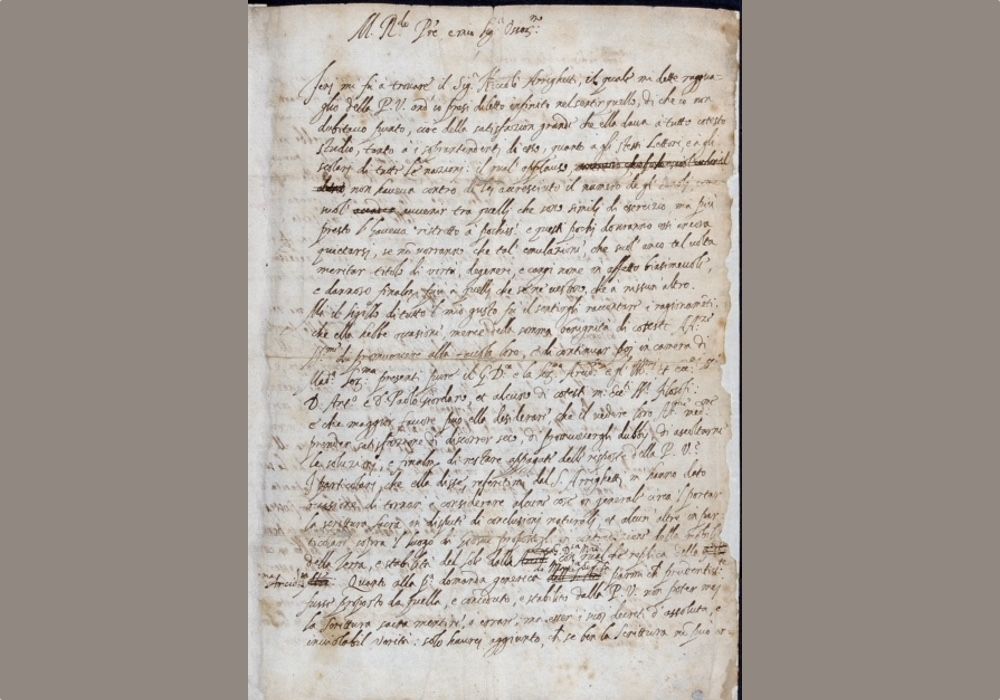 M. R.do P.re e mio Sig.r Oss.mo
Ieri mi fu a trovare il Sig. Niccolò Arrighetti, il quale mi dette raggua-
glio della P. V. ond' io presi diletto infinito nel sentir quello, di che io non
dubitavo punto, cioè della satisfazion grande che ella dava a tutto cotesto
studio, tanto a i sopraintendenti di esso, quanto a gli stessi Lettori, e a gli
scolari di tutte le nazioni: il qual applauso,
non haveva contro di lei accresciuto il numero de gli
suol avvenir tra quelli che sono simili di esercizio, ma più
presto l'haveva ristretto a pochiss.i e questi pochi dovranno essi ancora
quietarsi, se non vorranno che tal' emulazione, che suol' anco tal volta
meritar titolo di virtù, degeneri, e cangi nome in affetto biasimevole,
e dannoso finalm.te più a quelli che se ne vestono, che a nissun' altro.
Ma il sigillo di tutto il mio gusto fu il sentirgli raccontare i ragionamenti,
che ella hebbe occasione, mercè della somma benignità di coteste AA.
di promuovere alla tavola loro, e di continuar poi in camera di
Mad. Ser.ma presenti pure il G. D. e la Ser.ma Arcid. e gl' Ill. et ecc.
D. Ant.o e D. Paolo Giordano, et alcuno di cotesti m. ecc. SS. Filosofi.
e che maggior favore può ella desiderare, che il vedere loro Alt. med.
prender satisfazione di discorrer seco, di promuovergli dubbii, di ascoltarne
le soluzioni, e finalm. di restare appagate dell' risposte della P. V.
I particolari, che ella disse, referitimi dal S. Arrighetti, m' hanno dato
occasione di tornar a considerare alcune cose in generale circa 'l portar
la scrittura sacra in dispute di conclusioni naturali, et alcun' altre in par
ticolare sopra 'l luogo di Giosuè propostoli in contradizione della mobilità
della Terra, e stabilità del sole dalla con qualche replica della
Quanto alla p.a domanda generica parmi che prudentiss.te
fusse proposto da quella, e conceduto, e stabilito dalla P. V. non poter mai
la scrittura sacra mentire, o errare, ma esser i suoi decreti d' assoluta, e
inviolabil verità: solo haurei aggiunto, che se ben la scrittura non può er-